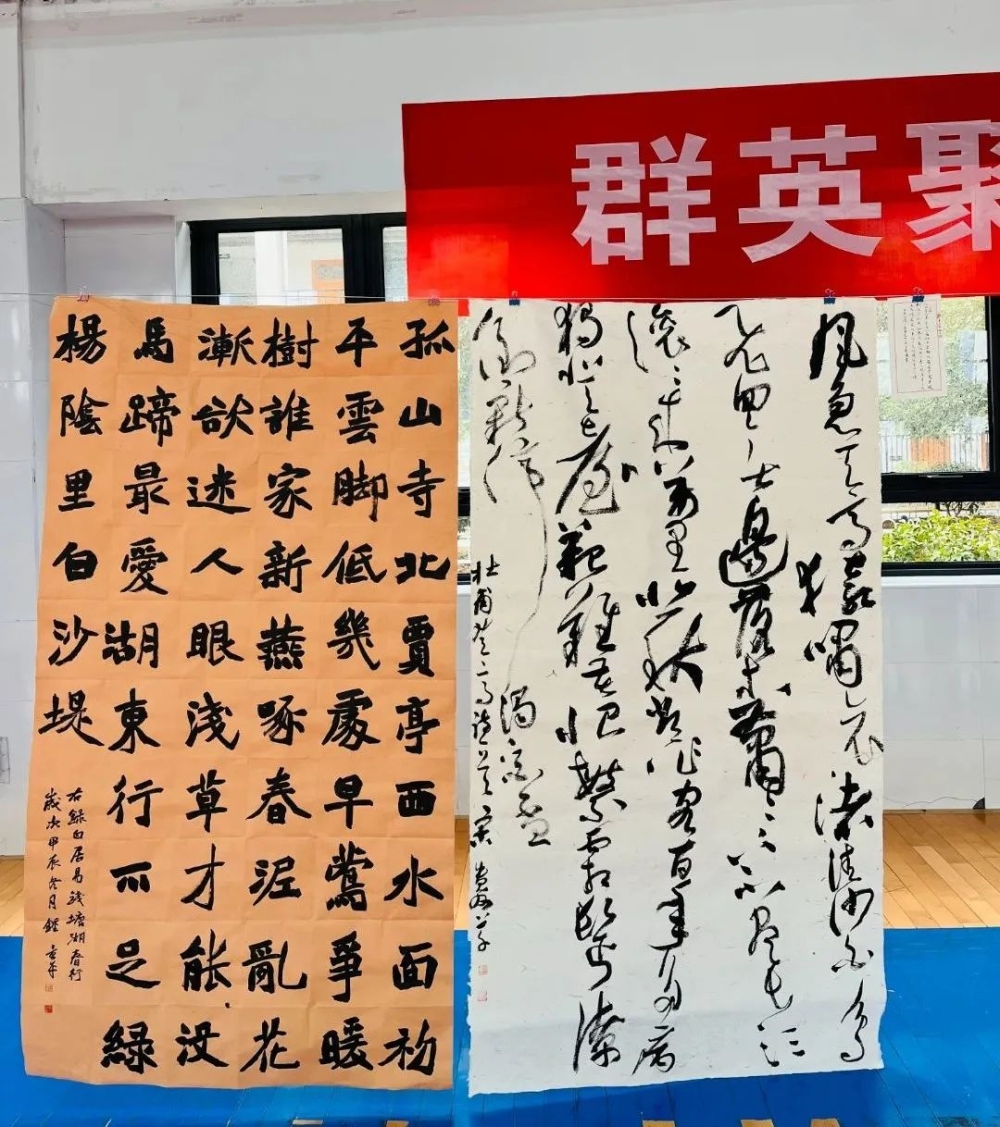 群英聚
風急天高猿嘯哀渚清沙白鳥
飛回無邊落木蕭〻下不盡長江
滚〻来萬里悲秋常作客百年多病
獨登臺艱難苦恨繁霜鬢潦
倒新停濁酒杯
孤山寺北賈亭西水面初
平雲脚低幾處早鶯爭暖
樹誰家新燕啄春泥亂花
漸欲迷人眼淺草才能没
馬蹄最愛湖東行不足綠
楊陰里白沙堤
右録白居易錢塘湖春行
歲次甲辰冬月